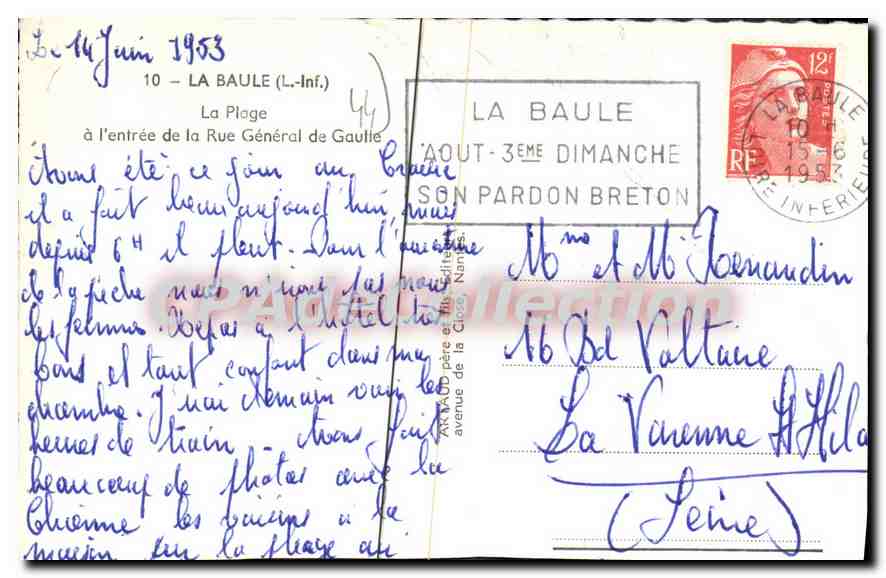 Le 14 Juin 1953
10 – LA BAULE (L.-Inf.)
44
La Plage
à l'entrée de la Rue Général de Gaulle
Avons été ce jour au
il a fait beau aujourd'hui, mais
depuis 6H il pleut.
de la pêche nous n'irons pas nous
les femmes. Repas à l'hôtel très
bons et tout confort dans ma
chambre. J'irai demain voir les
heures de train. Avons fait
beaucoup de photos avec la
Chienne les voisins à la
maison sur la plage
ARNAUD père et fils éditeurs
avenue de la Close, Nantes.
LA BAULE
AOUT - 3EME DIMANCHE
SON PARDON BRETON
12F
RF
LA BAULE
10 H
15-6
1953
LOIRE INFERIEURE
Mme et Mr
Bd Voltaire
La Varenne St Hila
(Seine)
CPA de Collection